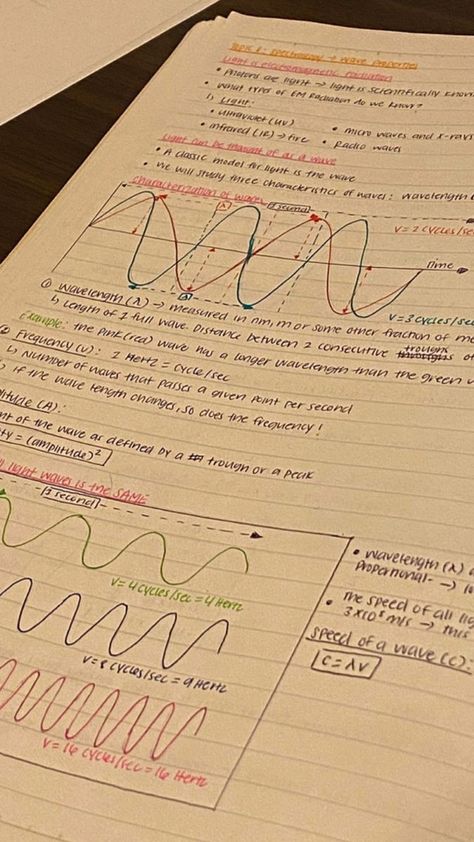 Topic 1: Spectroscopy → wave properties
Light is electromagnetic radiation
• Photons are light → light is scientifically know
• What types of EM Radiation do we know?
1) Light:
• ultraviolet (UV) • micro waves and x-rays
• infrared (IR) → fire • radio waves
Light can be thought of as a wave
• A classic model for light is the wave
• we will study three characteristics of waves: wavelength
Characterization of waves
(λ) 1 second
v = 2 cycles/sec
Time
(λ)
v = 3 cycles/sec
① Wavelength (λ) → measured in nm, m or some other fraction of me
↳ Length of 1 full wave. Distance between 2 consecutive troughs o
Example: the pink (red) wave has a longer wavelength than the green
② Frequency (v): 1 Hertz = cycle/sec
↳ Number of waves that passes a given point per second
↳ if the wave length changes, so does the frequency!
plitude (A):
nt of the wave as defined by a trough or a peak
ty = (amplitude)²
light waves is the SAME
1 second
v = 4 cycles/sec = 4 Hertz
v = 8 cycles/sec = 9 Hertz
v = 16 cycles/sec = 16 Hertz
• wavelength (λ)
proportional- →
• The speed of all lig
3×10⁸ m/s → this
speed of a wave (c):
c = λv